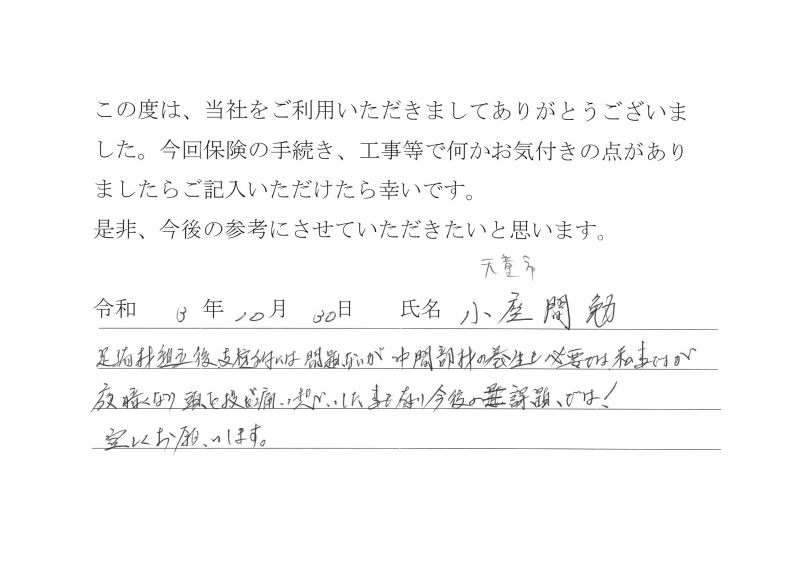 この度は、当社をご利用いただきましてありがとうございま
した。今回保険の手続き、工事等で何かお気付きの点があり
ましたらご記入いただけたら幸いです。
是非、今後の参考にさせていただきたいと思います。
天童市
令和 3 年 10月 30日 氏名 小座間 勉
足場材組立後支柱 には問題ないが 中間部材の養生も必要では 私事だが
夜暗くなり 頭を 痛い した事も有り 今後の 課題、では!
宜しくお願いします。